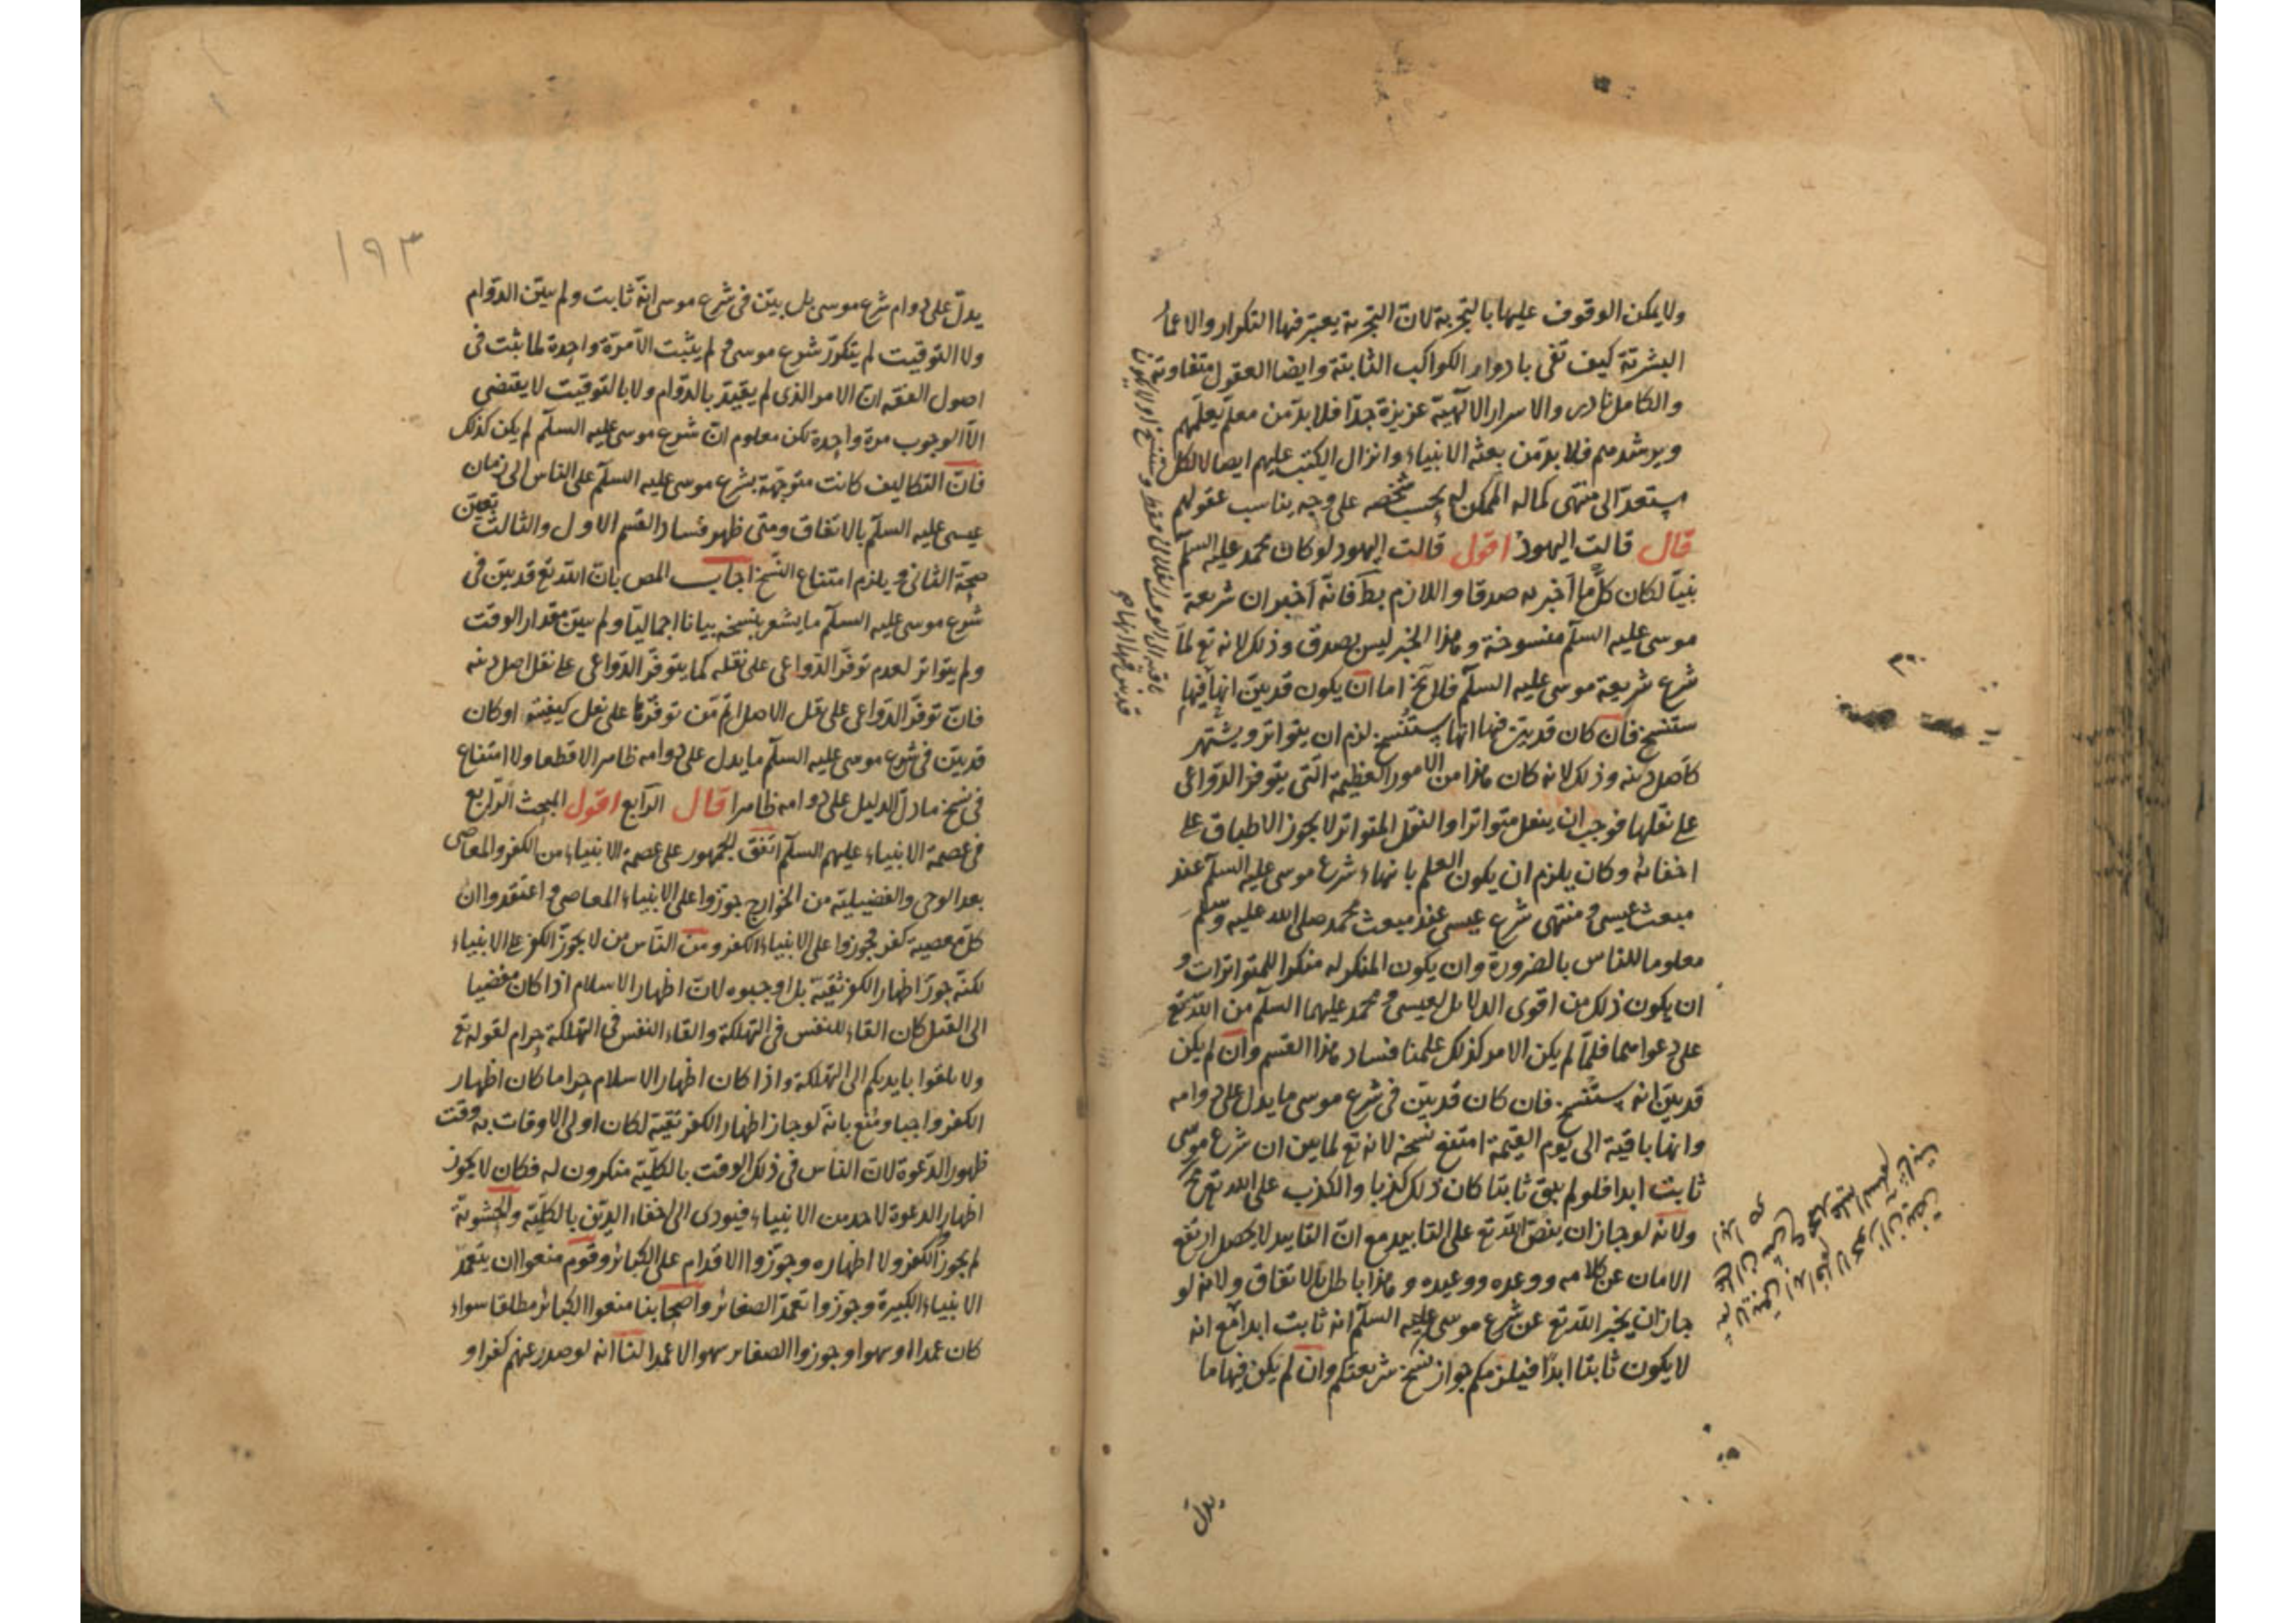 ولا يمكن الوقوف عليها بالتجربة لان التجربة يعتبر فيها التكرار والاعمار
البشرية كيف تفى بادوار الكواكب الثابتة وايضا العقول متفاوتة
والكامل نادر والاسرار الالهية عزيزة جدا فلا بد من معلم يعلمهم
ويرشدهم فلا بد من بعثه الانبياء وانزال الكتب عليهم ايصالا لكل
مستعد الى منتهى كماله الممكن له بحسب شخصه على وجه يناسب عقولهم
قال قالت اليهود اقول قالت اليهود لو كان محمد عليه السلم
نبيا لكان كل ما اخبر به صدقا واللازم بط فانه اخبر ان شريعة
موسى عليه السلم منسوخة وهذا الخبر ليس بصدق وذلك لانه تع لما
شرع شريعة موسى عليه السلم فلا يخ اما ان يكون قد بين انها فيها
ستنسخ فان كان قد بين فيها انها ستنسخ لزم ان يتواتر ويشتهر
كاصل دينه وذلك لانه كان هذا من الامور العظيمة التى يتوفر الدواعى
على نقلها فوجب ان ينقل متواترا والنقل المتواتر لا يجوز الاطباق على
اخفائه وكان يلزم ان يكون العلم بانهاء شرع موسى عليه السلم عند
مبعث عيسى ومنتهى شرع عيسى عند مبعث محمد صلى الله عليه وسلم
معلوما للناس بالضرورة وان يكون المنكر له منكرا للمتواترات و
ان يكون ذلك من اقوى الدلايل لعيسى ومحمد عليهما السلم من الله تع
على دعواهما فلما لم يكن الامر كذلك علمنا فساد هذا القسم وان لم يكن
قد بين انه ستنسخ فان كان قد بين فى شرع موسى ما يدل على دوامه
وانها باقية الى يوم القيمة امتنع نسخه لانه تع لما بين ان شرع موسى
ثابت ابدا فلو لم يبق ثابتا كان ذلك كذبا والكذب على الله تع مح
ولانه لو جاز ان ينص الله تع على التابيد مع ان التابيد لا يحصل ارتفع
الامان عن كلامه ووعده ووعيده وهذا باطل بالاتفاق ولانه لو
جاز ان يخبر الله تع عن شرع موسى عليه السلم انه ثابت ابدا مع انه
لا يكون ثابتا ابدا فيلزمكم جواز نسخ شريعتكم وان لم يكن فيها ما
يدل
١٩٣
يدل على دوام شرع موسى بل بين فى شرع موسى انه ثابت ولم يبين الدوام
ولا التوقيت لم يتكرر شرع موسى ولم يثبت الا مرة واحدة لما ثبت فى
اصول الفقه ان الامر الذى لم يقيد بالدوام ولا بالتوقيت لا يقتضى
الا الوجوب مرة واحدة لكن معلوم ان شرع موسى عليه السلم لم يكن كذلك
فان التكاليف كانت متوجهة بشرع موسى عليه السلم على الناس الى زمان
عيسى عليه السلم بالاتفاق ومتى ظهر فساد القسم الاول والثالث تعين
صحة الثانى و يلزم امتناع النسخ اجاب المص بان الله تع قد بين فى
شرع موسى عليه السلم ما يشعر بنسخه بيانا اجماليا ولم يبين مقدار الوقت
ولم يتواتر لعدم توفر الدواعى على نقله كما يتوفر الدواعى على نقل اصل دينه
فان توفر الدواعى على نقل الاصل اتم من توفرها على نقل كيفيته او كان
قد بين فى شرع موسى عليه السلم ما يدل على دوامه ظاهرا لا قطعا ولا امتناع
فى نسخ ما دل الدليل على دوامه ظاهرا قال الرابع اقول المبحث الرابع
فى عصمة الانبياء عليهم السلم اتفق الجمهور على عصمة الانبياء من الكفر والمعاصى
بعد الوحى والفضيلية من الخوارج جوزوا على الانبياء المعاصى و اعتقدوا ان
كل معصية كفر فجوزوا على الانبياء الكفر ومن الناس من لا يجوز الكفر على الانبياء
لكنه جوز اظهار الكفر تقية بل اوجبوه لان اظهار الاسلام اذا كان مفضيا
الى القتل كان القاء للنفس فى التهلكة والقاء النفس فى التهلكة حرام لقوله تع
ولا تلقوا بايديكم الى التهلكة واذا كان اظهار الاسلام حراما كان اظهار
الكفر واجبا ومنع بانه لو جاز اظهار الكفر تقية لكان اولى الاوقات به وقت
ظهور الدعوة لان الناس فى ذلك الوقت بالكلية منكرون له فكان لا يجوز
اظهار الدعوة لاحد من الانبياء فيؤدى الى اخفاء الدين بالكلية والحشوية
لم يجوز الكفر ولا اظهاره وجوزوا الاقدام على الكبائر وقوم منعوا ان يتعمد
الانبياء الكبيرة وجوزوا تعمد الصغائر واصحابنا منعوا الكبائر مطلقا سواء
كان عمدا او سهوا وجوزوا الصغاير سهوا لا عمدا لنا انه لو صدر عنهم كفر او